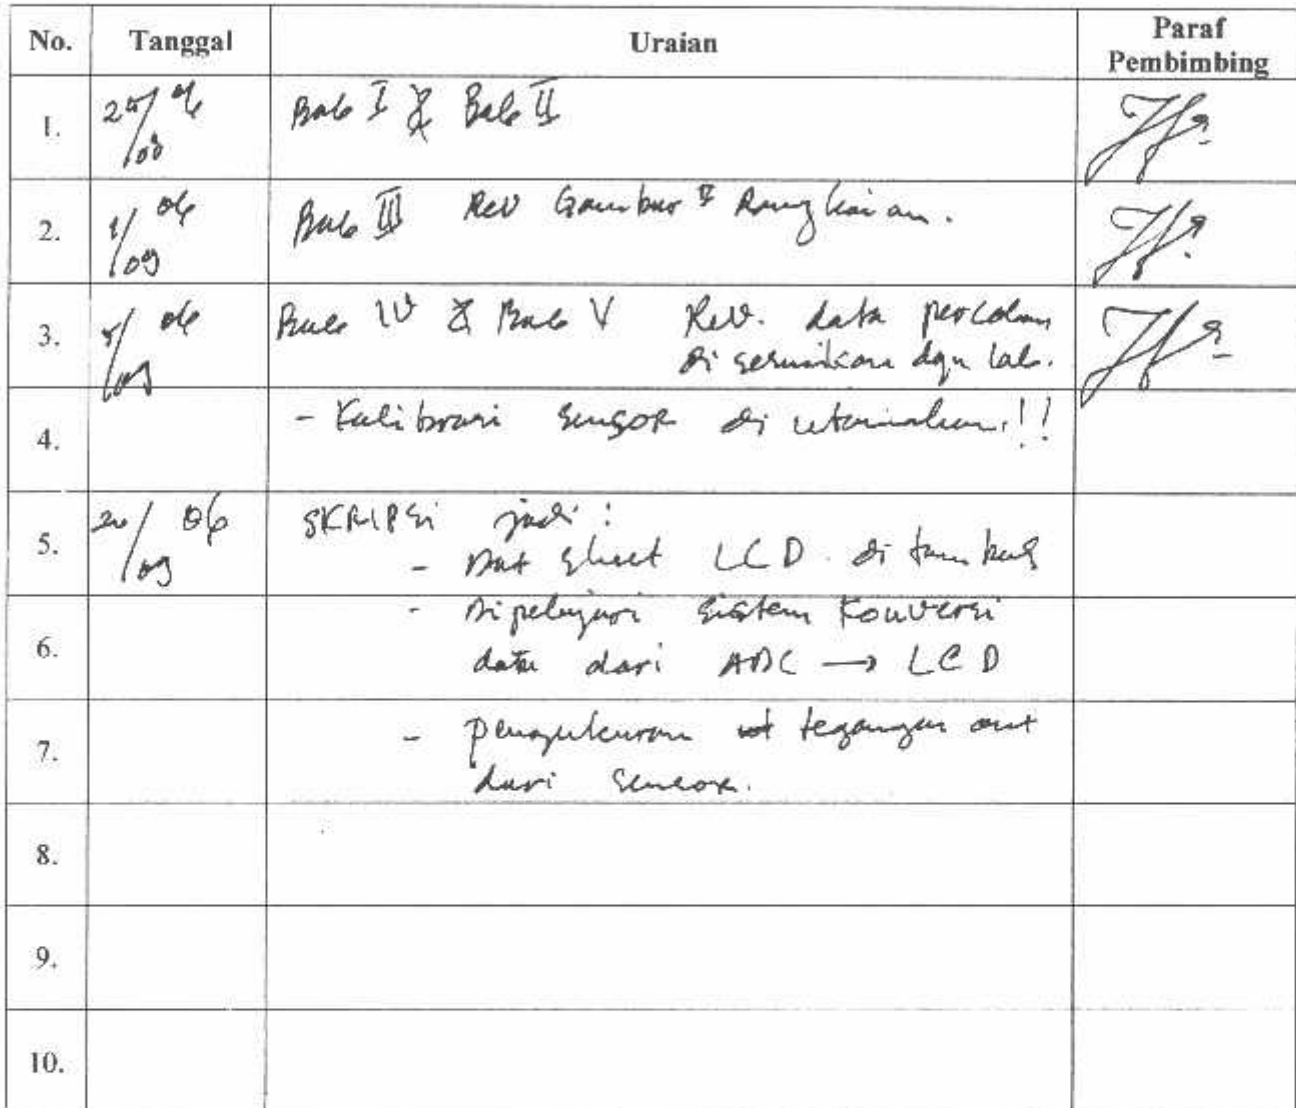 No. Tanggal Uraian Paraf Pembimbing
1. 25/08 06 Bab I & Bab II
2. 1/09 06 Bab III Rev Gambar² Rangkaian.
3. 5/09 06 Bab IV & Bab V Rev. data percobaan
di sesuaikan dgn lab.
4. - Kalibrasi sensor di utamakan!!
5. 20/09 06 SKRIPSi jadi:
- Dat sheet LCD di tambah
6. - Dipelajari sistem Konversi
data dari ADC → LCD
7. - pengukuran tegangan out
dari sensor.
8.
9.
10.